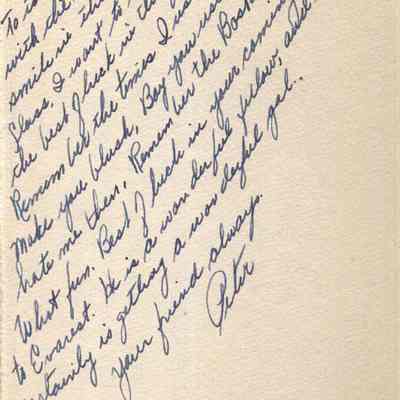 To
with the
smile in the
Class, I want to
the best of luck in the
Remember the times I us
make you blush, Boy you
hate me then, Remember the Bask
What fun. Best of luck in your comin
to Evarest. He is a wonderful fellow, and
certainly is getting a wonderful gal..
Your friend always.
Peter